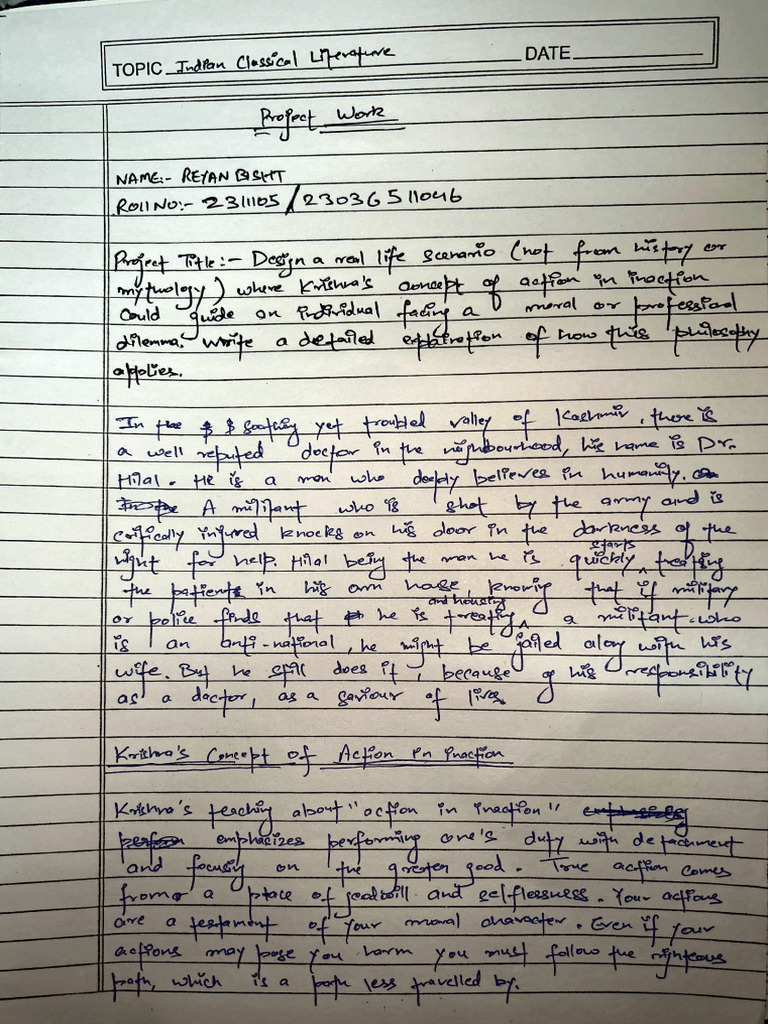 TOPIC Indian Classical Literature DATE
Project Work
NAME:- REYAN BISHT
Roll NO:- 2311105/23036511046
Project Title:- Design a real life scenario (not from history or
mythology) where Krishna's concept of action in inaction
could guide an individual facing a moral or professional
dilemma. Write a detailed explration of how this philosophy
applies.
In the soothing yet troubled valley of Kashmir, there is
a well reputed doctor in the neighbourhood, his name is Dr.
Hilal. He is a man who deeply believes in humanity.
A militant who is shot by the army and is
critically injured knocks on his door in the darkness of the
night for help. Hilal being the man he is quickly starts treating
the patient in his own house, knowing that if military
or police finds that he is treating and housing a militant who
is an anti-national, he might be jailed along with his
wife. But he still does it, because of his responsibility
as a doctor, as a saviour of lives
Krishna's Concept of Action in inaction
Krishna's teaching about "action in inaction"
emphasizes performing one's duty with detachment
and focusing on the greater good. True action comes
from a place of goodwill and selflessness. Your actions
are a testament of your moral character. Even if your
actions may pose you harm you must follow the righteous
path, which is a path less travelled by.